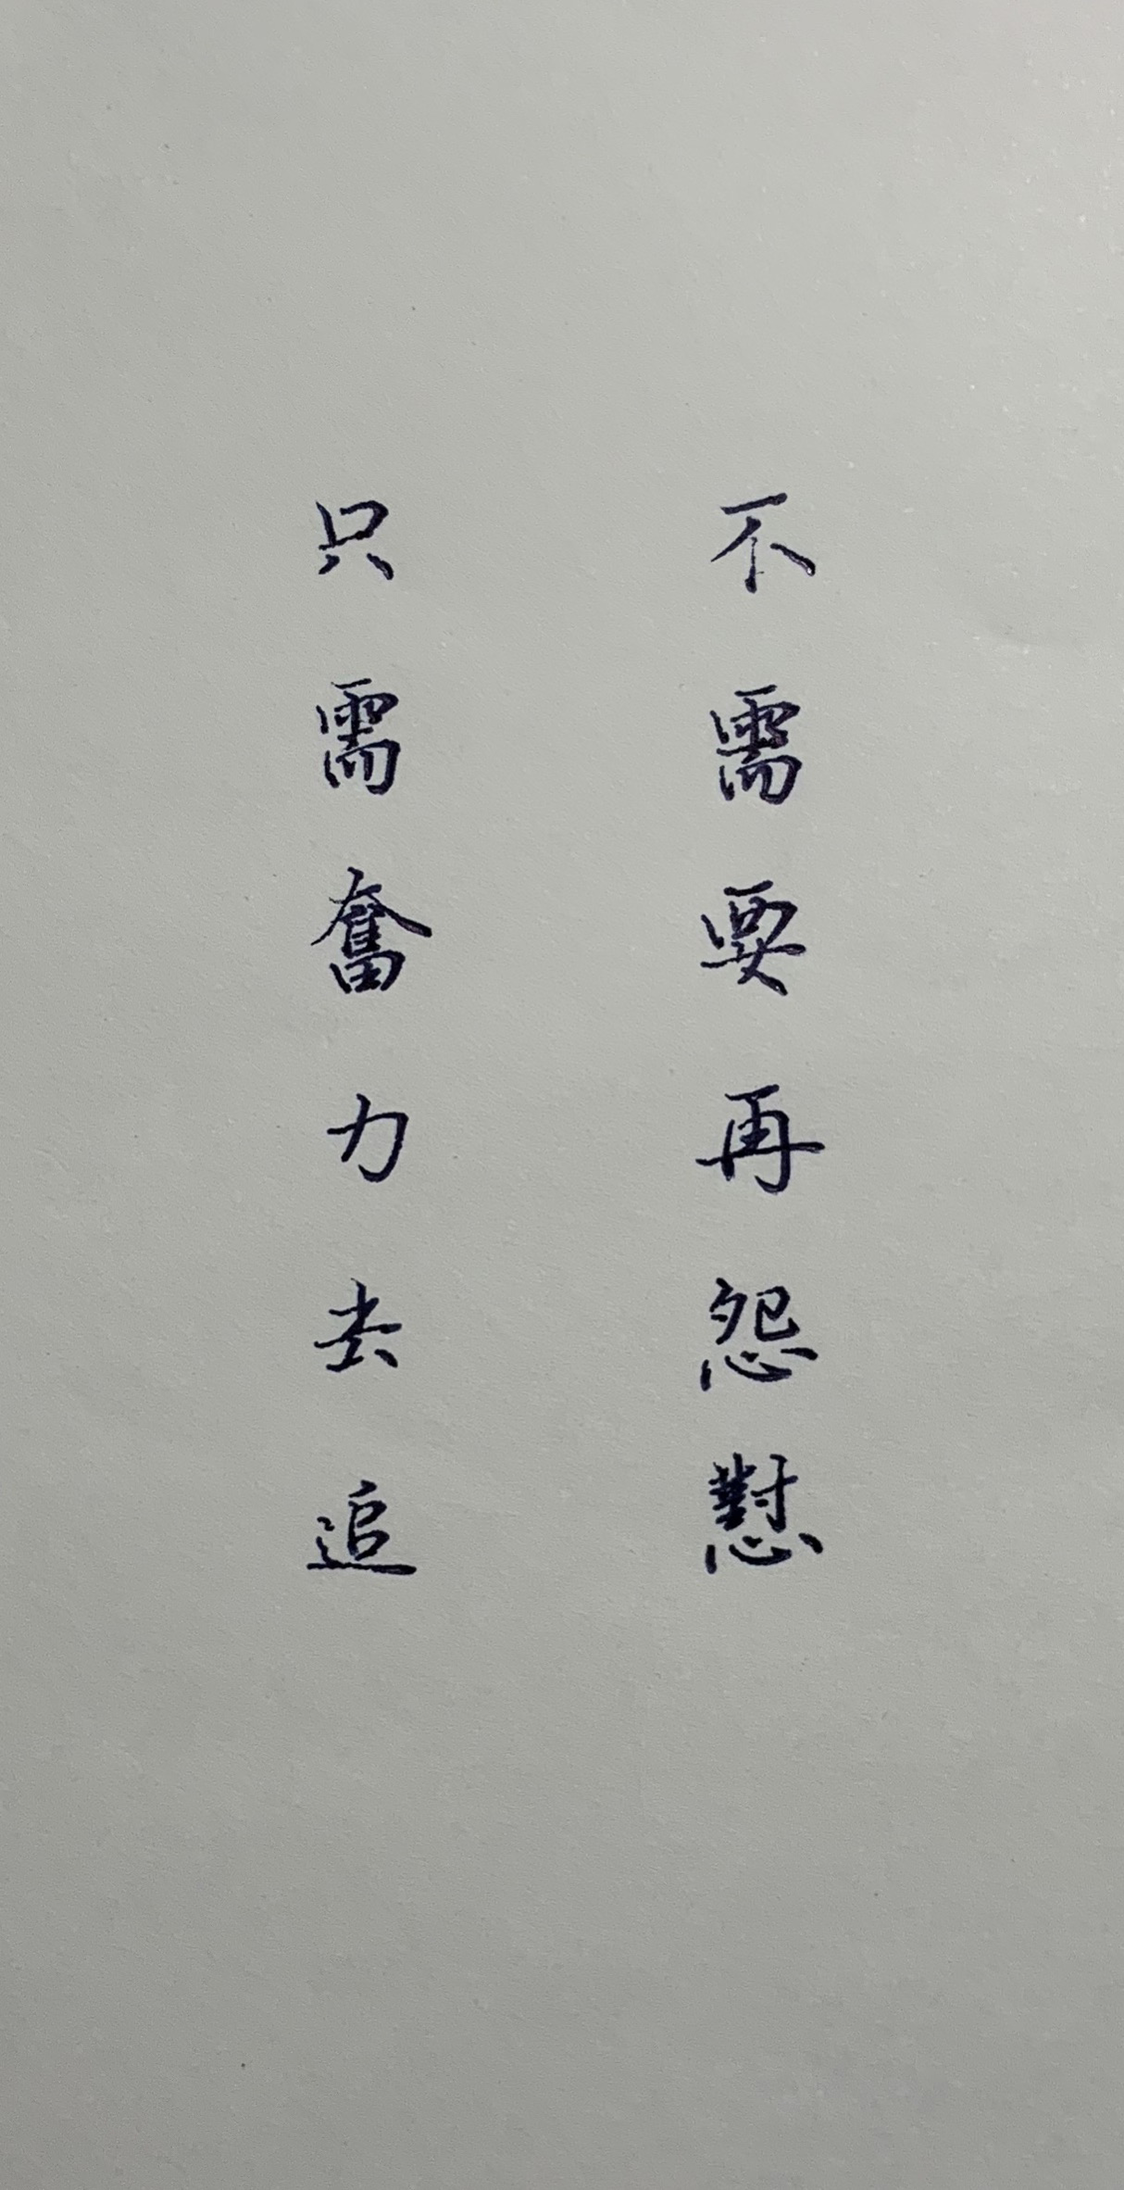 不需要再怨懟
只需奮力去追